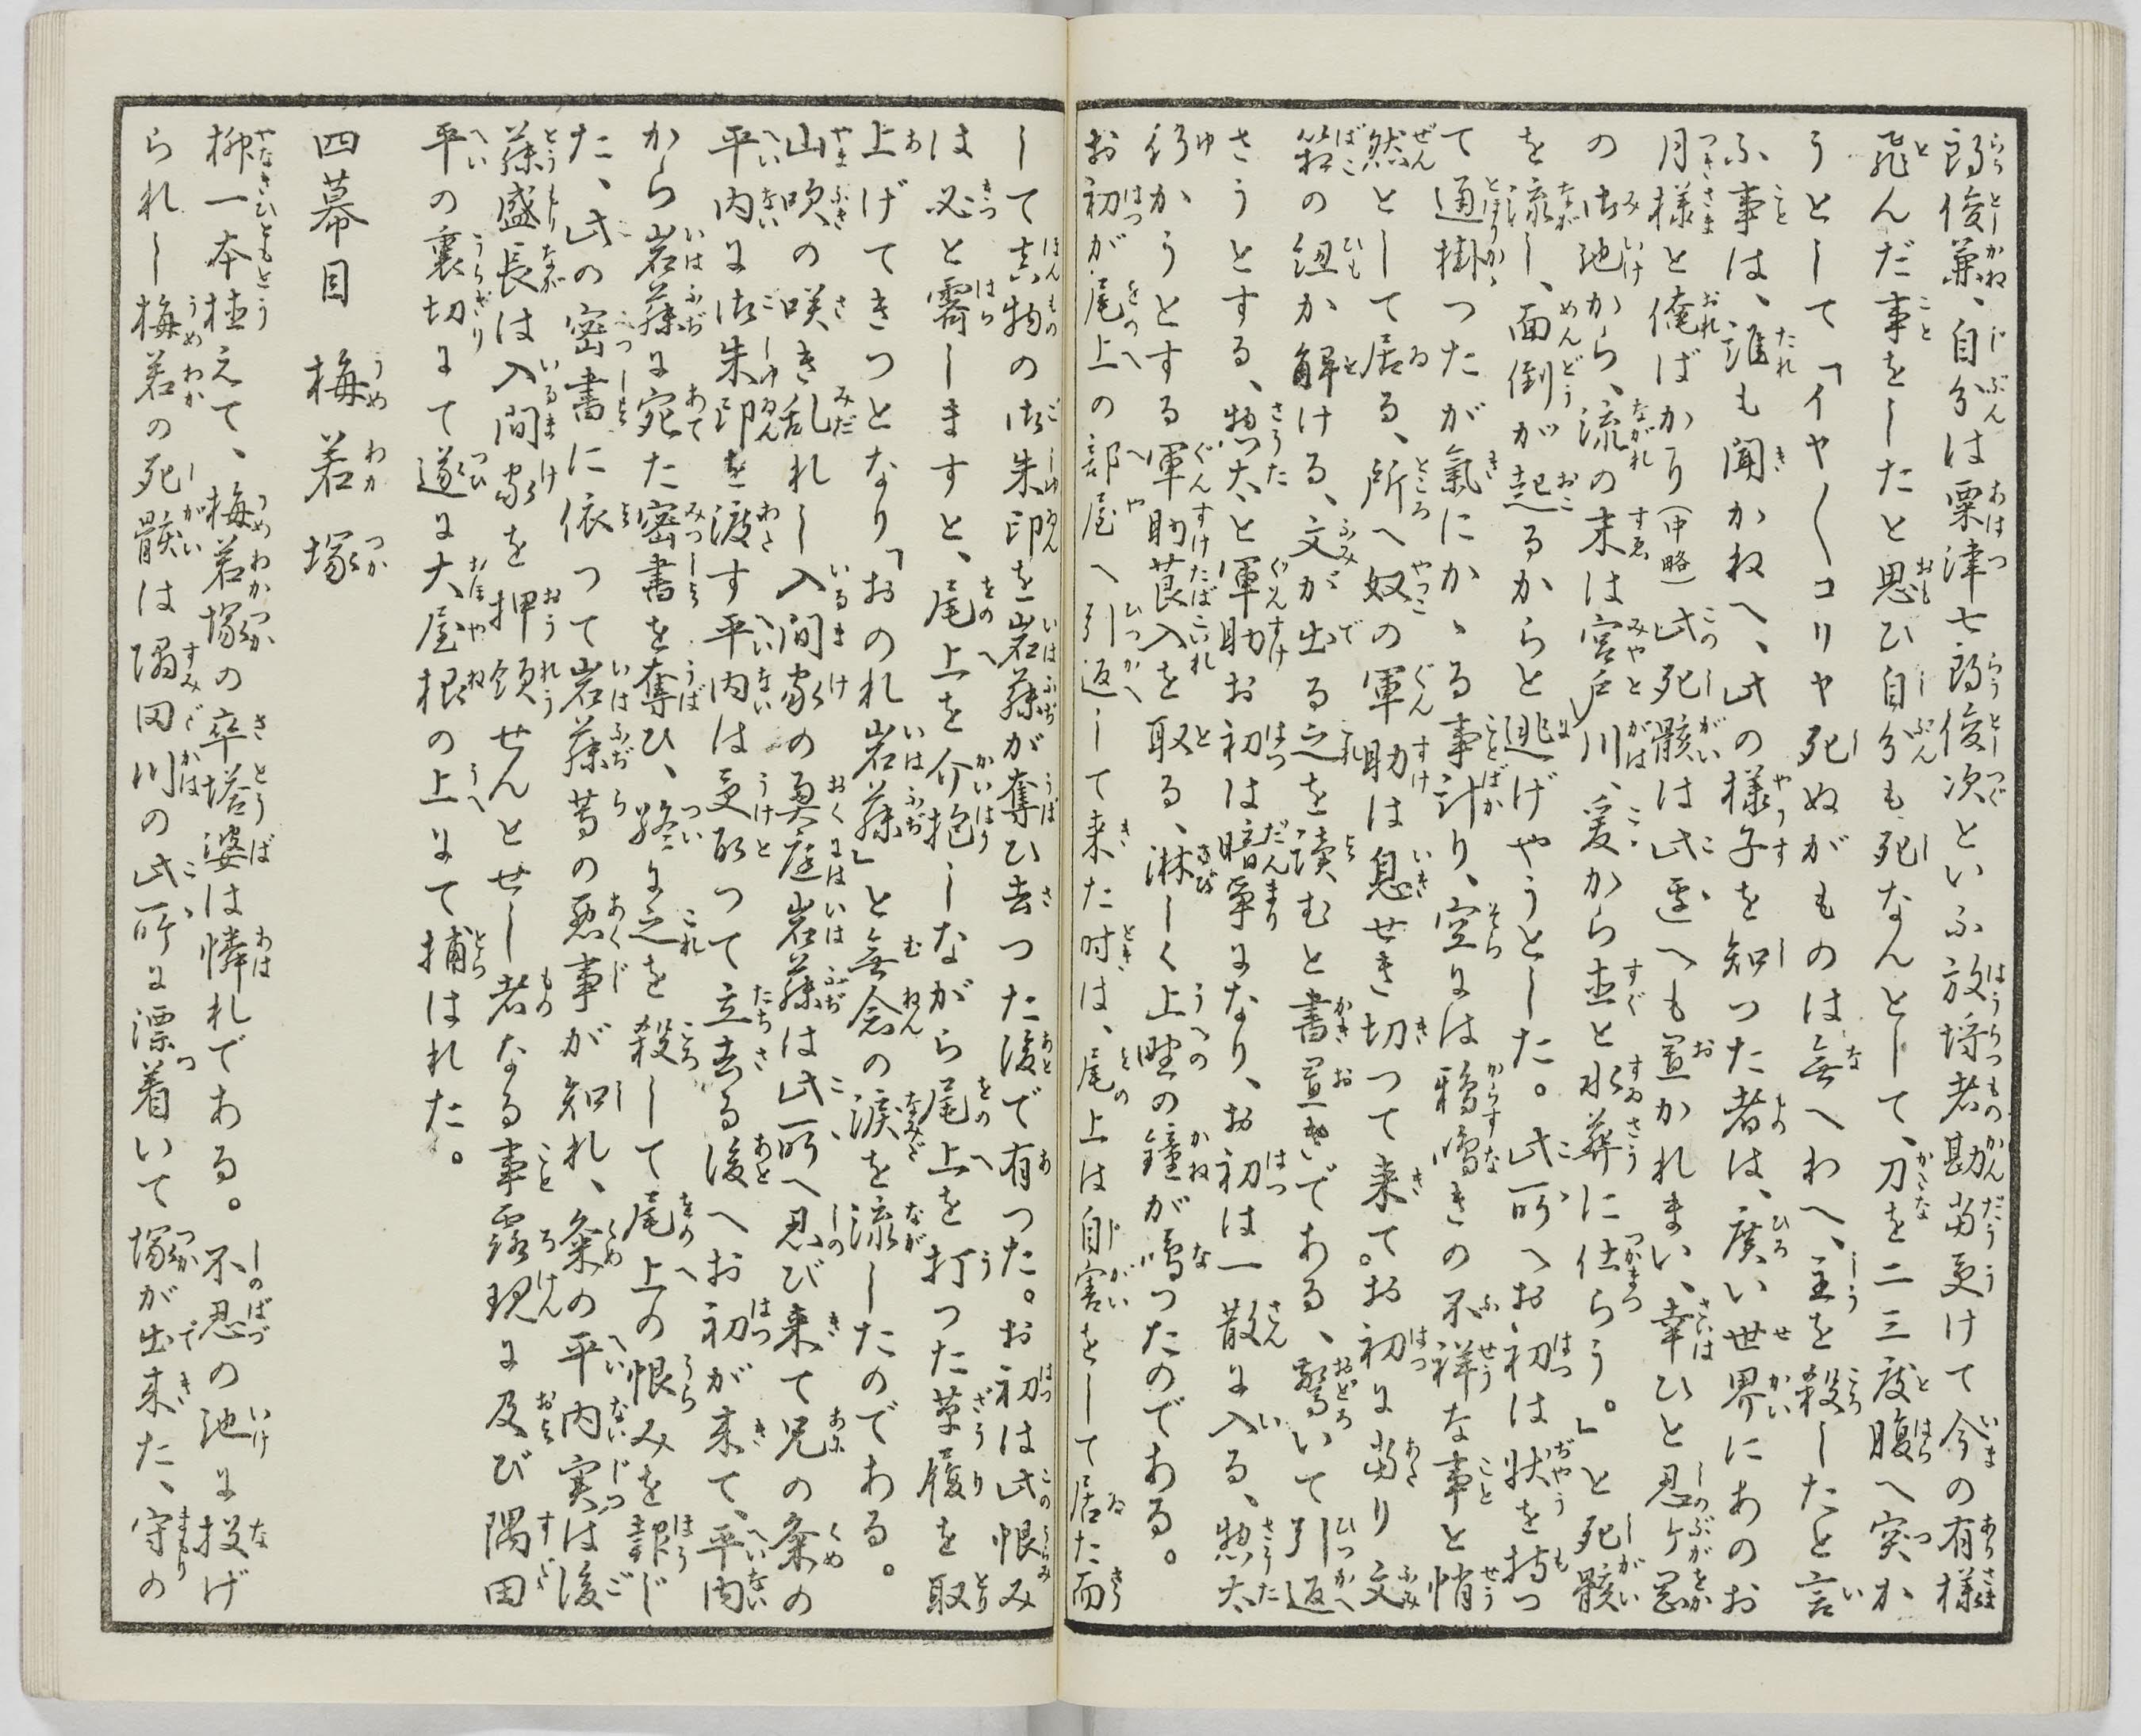 郎俊兼、自分は粟津七郎俊次といふ放埓者勘當受けて今の有様
飛んだ事をしたと思ひ自分も死なんとして、刀を二三度腹へ突か
うとして「イヤ〳〵コリヤ死ぬがものは無へわへ、主を殺したと言
ふ事は、誰も聞かねへ、此の様子を知つた者は、廣い世界にあのお
月様と俺ばかり(中略)此死骸は此処へも置かれまい、幸ひと忍ケ岡
の御池から、流の末は宮戸川、爰から直と水葬に仕らう。」と死骸
を流し、面倒が起るからと逃げやうとした。此所へお初は状を持つ
て通掛つたが氣にかゝる事計り、空には鴉鳴きの不祥な事と悄
然として居る、所へ奴の軍助は息せき切つて来て。お初に當り文
箱の紐か解ける、文が出る之を読むと書置きである、驚いて引返
さうとする、惣太と軍助お初は暗争になり、お初は一散に入る、惣太
行かうとする軍助莨入を取る、淋しく上野の鐘が鳴つたのである。
お初が尾上の部屋へ引返して来た時は、尾上は自害をして居た而
して本物の御朱印を岩藤が奪ひ去つた後で有つた。お初は此恨み
は必と霽しますと、尾上を介抱しながら尾上を打つた草履を取
上げてきつとなり「おのれ岩藤」と無念の涙を流したのである。
山吹の咲き乱れし入間家の奥庭岩藤は此所へ忍び来て兄の粂の
平内に御朱印を渡す平内は受取つて立去る後へお初が来て、平内
から岩藤に宛た密書を奪ひ、終に之を殺して尾上の恨みを報じ
た、此の密書に依つて岩藤等の悪事が知れ、粂の平内実は後
藤盛長は入間家を押領せんとせし者なる事露現に及び隅田
平の裏切にて遂に大屋根の上にて捕はれた。
四幕目 梅若塚
柳一本植えて、梅若塚の卒塔婆は憐れである。不忍の池に投げ
られし梅若の死骸は隅田川の此所に漂着いて塚が出来た、守の